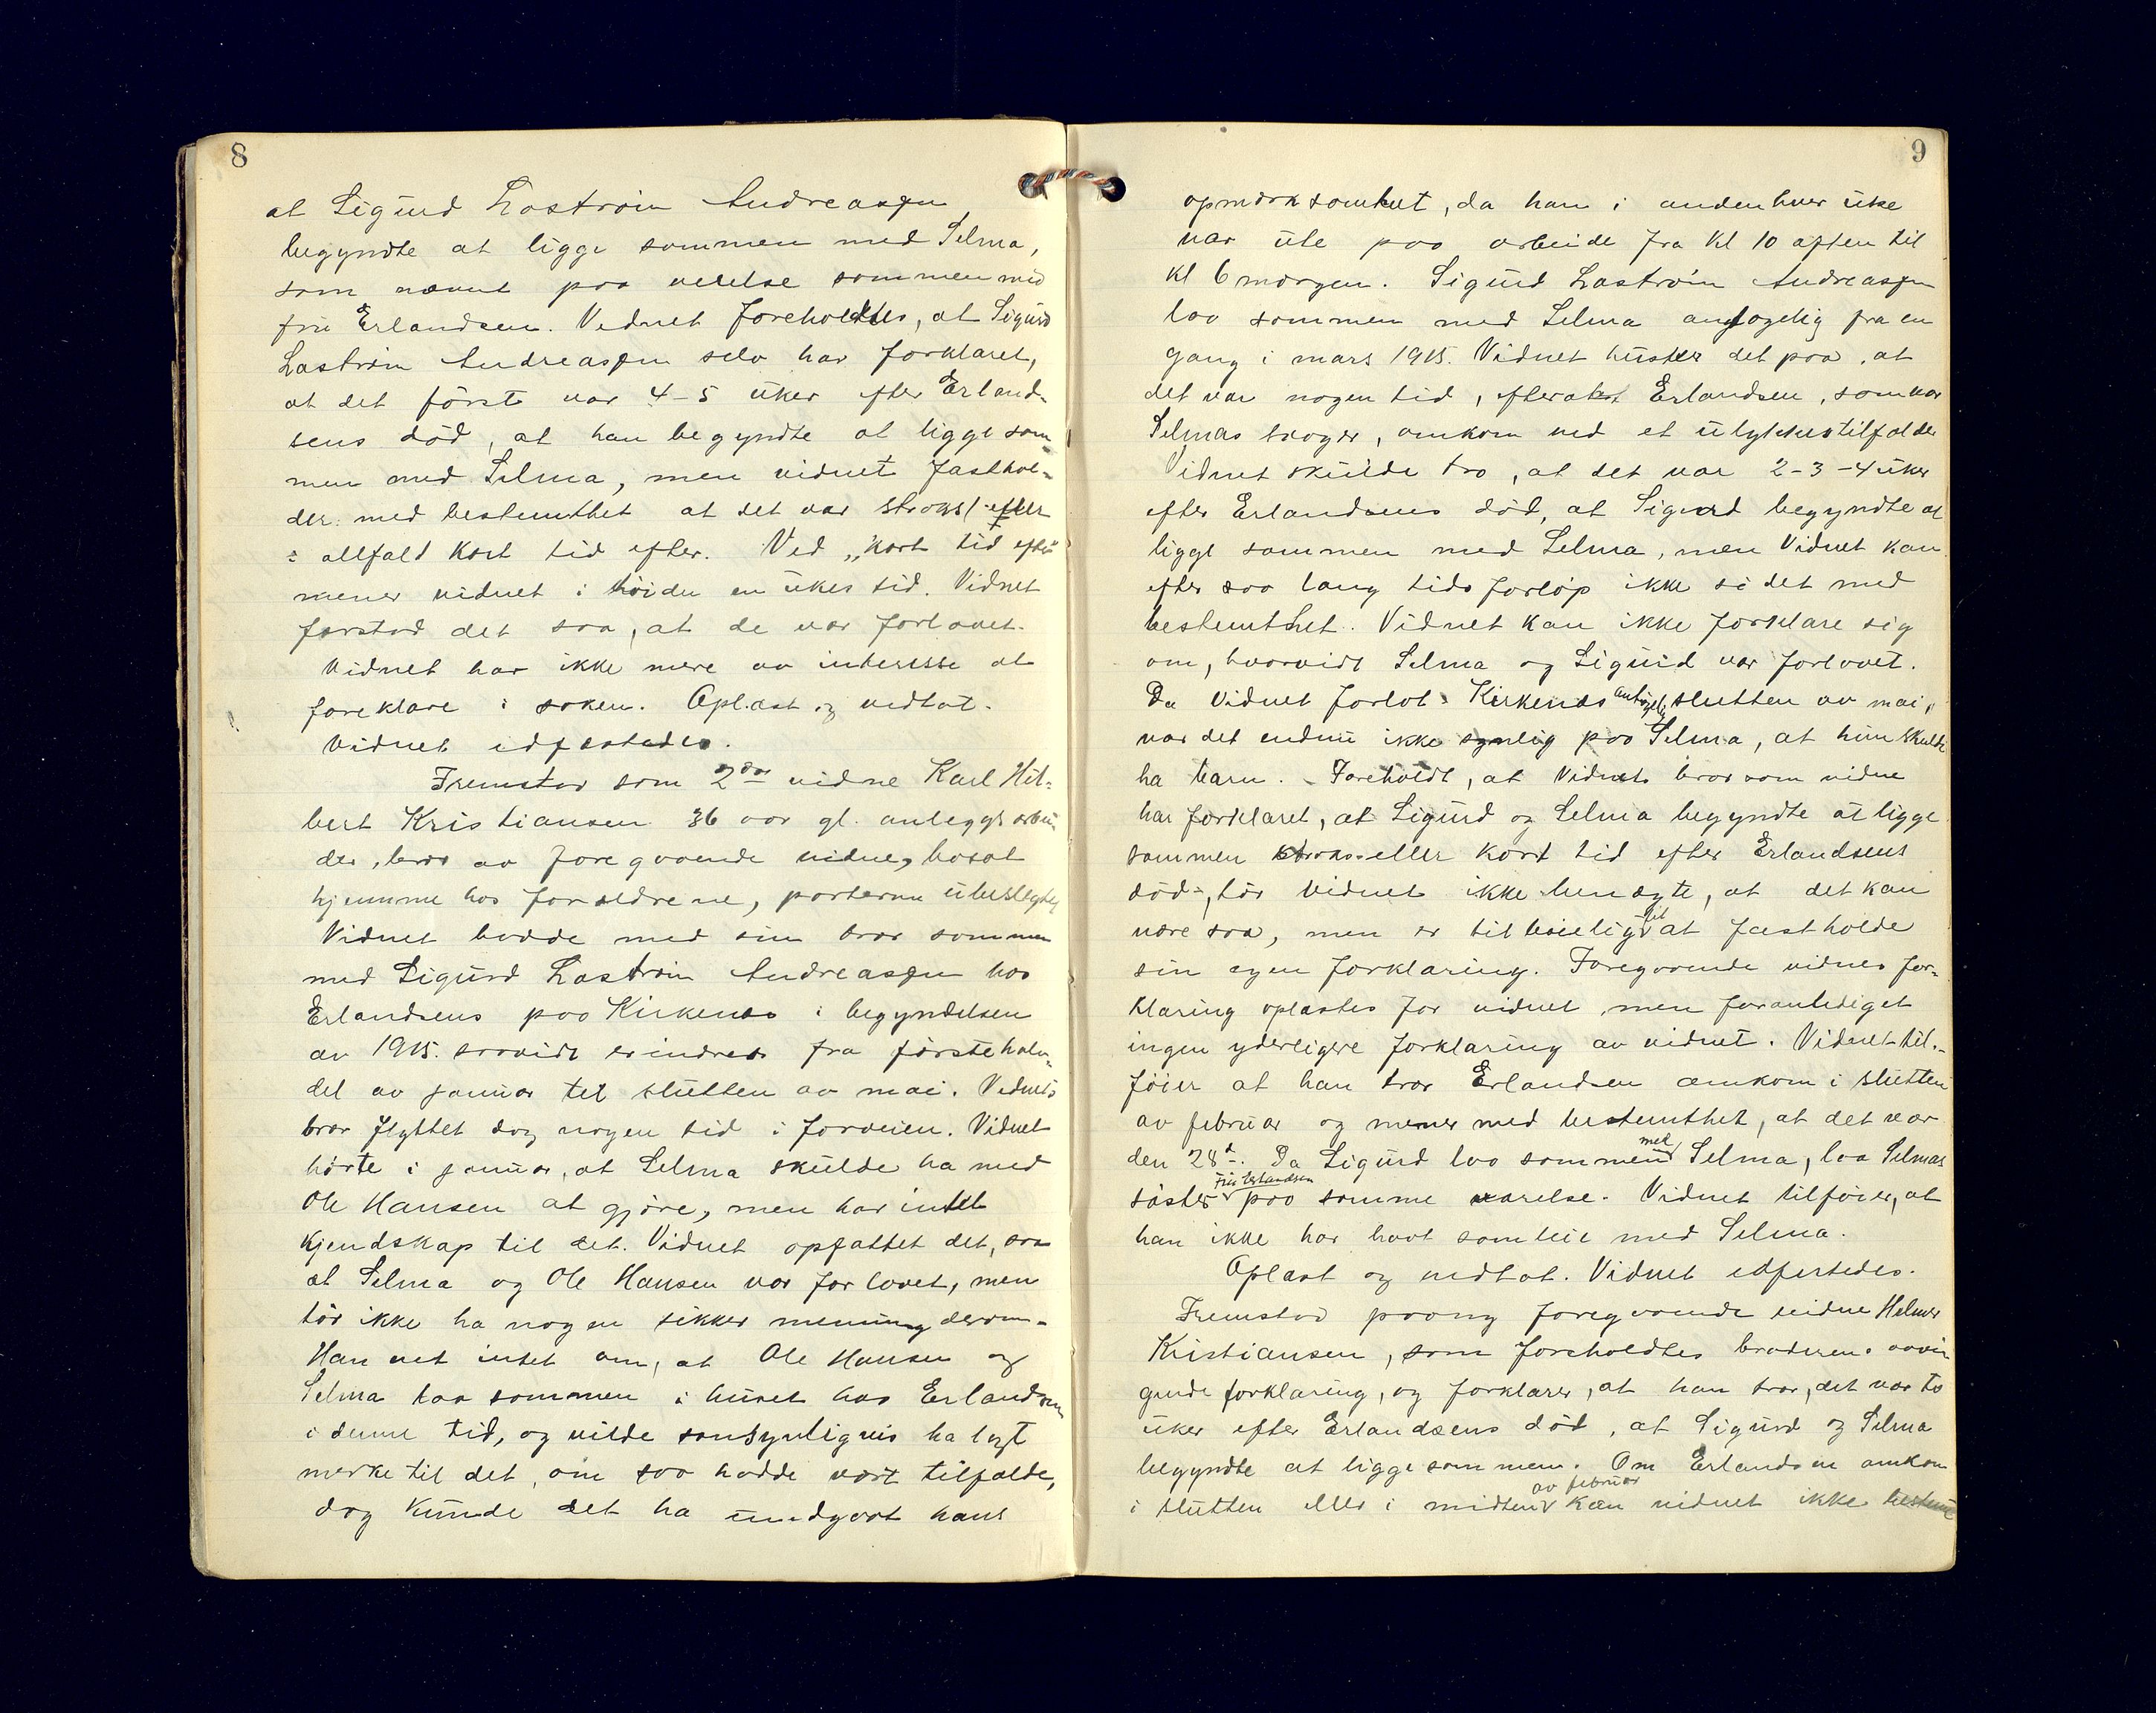 8
at Sigurd Laström Andreassen
begyndte at ligge sammen med Selma,
som nævnt paa værelse sammen med
fru Erlandsen. Vidnet foreholdtes, at Sigurd
Laström Andreassen selv har forklaret,
at det först var 4-5 uker efter Erland-
sens död, at han begyndte at ligge sam-
men med Selma, men vidnet fasthol-
der med bestemthet at det var straks eller
i alfald kort tid efter. Ved "kort tid efter"
mener vidnet i höiden en ukes tid. Vidnet
forstod det saa, at de var forlovet.
Vidnet har ikke mere av interesse at
foreklare i saken. Oplæst og vedtat.
Vidnet edfæstedes.
Fremstod som 2det vidne Karl Hil-
bert Kristiansen 36 aar gl. anleggsarbei
der, bror av foregaaende vidne, bosat
hjemme hos forældrene, parterne ubeslegtet
Vidnet bodde med sin bror sammen
med Sigurd Laström Andreassen hos
Erlandsens paa Kirkenes i begyndelsen
av 1915. saavidt erindres fra förstehalv-
del av januar til slutten av mai. Vidnets
bror flyttet dog nogen tid i forveien. Vidnet
hörte i januar, at Selma skulde ha med
Ole Hansen at gjöre, men har intet
kjendskap til det. Vidnet opfattet det, saa
at Selma og Ole Hansen var forlovet, men
tör ikke ha nogen sikker mening derom.
Han vet intet om, at Ole Hansen og
Selma laa sammen i huset hos Erlandsen
i denne tid, og vilde sansynligvis ha lagt
merke til det, om saa hadde vært tilfælde,
dog kunde det ha undgaat hans
9
opmærksomhet, da han i anden hver uke
var ute paa arbeide fra kl 10 aften til
kl 6 morgen. Sigurd Laström Andreassen
laa sammen med Selma antagelig fra en
gang i mars 1915. Vidnet husker det paa, at
det var nogen tid, efterat Erlandsen, som var
Selmas svoger, omkom ved et ulykkestilfælde
Vidnet skulde tro, at det var 2-3-4 uker
efter Erlandsens död, at Sigurd begyndte at
ligge sammen med Selma, men Vidnet kan
efter saa lang tids forlöp ikke si det med
bestemthet. Vidnet kan ikke forklare sig
om, hvorvidt Selma og Sigurd var forlovet.
Da Vidnet forlot Kirkenes antagelig slutten av mai,
var det endnu ikke synlig paa Selma, at hun skulde
ha barn. Foreholdt, at Vidnets bror som vidne
har forklaret, at Sigurd og Selma begyndte at ligge
sammen straks eller kort tid efter Erlandsens
död, tör vidnet ikke benægte, at det kan
være saa, men er tilbøielig til at fastholde
sin egen forklaring. Foregaaende vidnes for-
klaring oplæstes for vidnet, men foranlediget
ingen yderligere forklaring av vidnet. Vidnet til-
föier at han tror Erlandsen omkom i slutten
av februar og mener med bestemthet, at det var
den 28d. Da Sigurd laa sammen med Selma, laa Selmas
söster Fru Erlandsen paa samme værelse. Vidnet tilföier, at
han ikke har havt samleie med Selma.
Oplæst og vedtat. Vidnet edfæstedes.
Fremstod paany foregaaende vidne Helmer
Kristiansen, som foreholdtes broderens avvi
gende forklaring, og forklarer, at han tror, det var to
uker efter Erlandsens död, at Sigurd og Selma
begyndte at ligge sammen. Om Erlandsen omkom
i slutten eller i midten av februar kan vidnet ikke bestemt